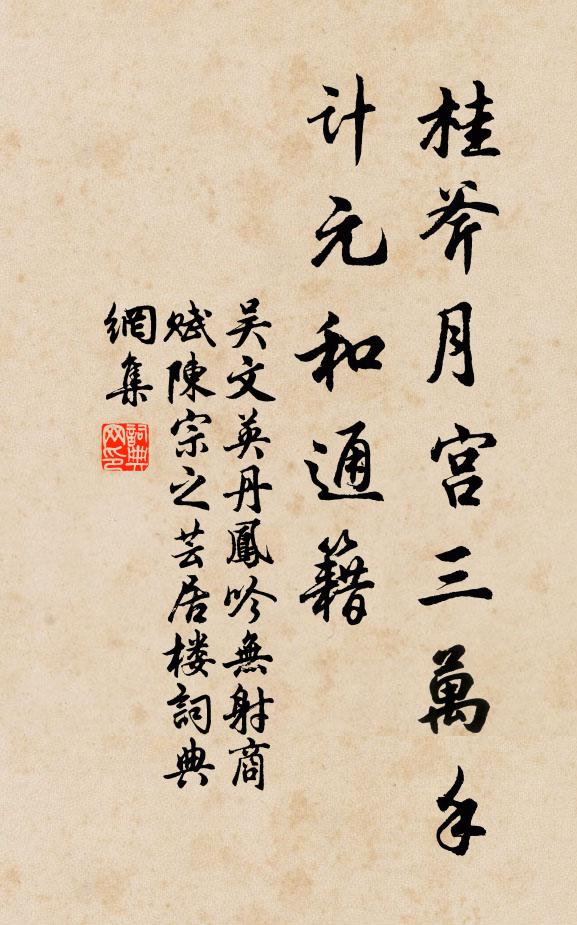 桂斧月宫三萬手
计元和通籍
吴文英丹鳳吟無射商
赋陳宗之芸居楼詞典
網集
詞典網印